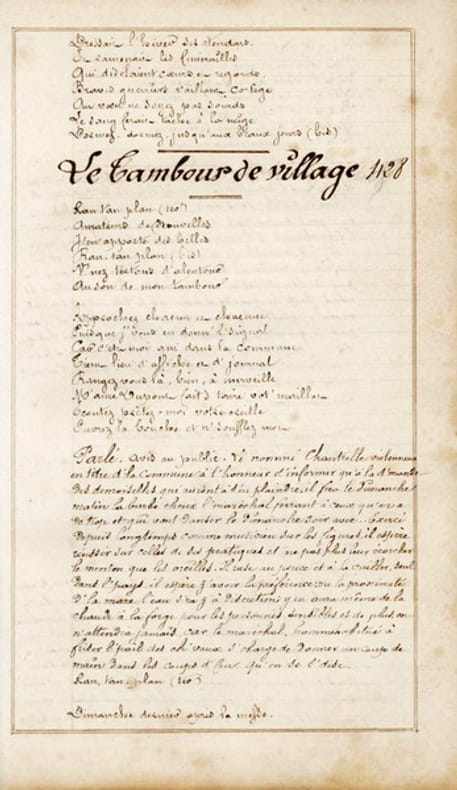 Dressait l'hiver ses étendards.
Et ramenait les funérailles
Qui désolaient cœurs et regards,
Braves guerriers vaillant cortège
Au vœu ne soyez pas sourds
Le sang ferait tache à la neige
Dormez, dormez jusqu'aux beaux jours (bis)
Le Tambour de village 428
Ran tan plan (ter)
Amateurs de nouvelles
J'en apporte des belles
Ran, tan plan (bis)
V'nez tertous d'alentour
Au son de mon tambour
Approchez chacun et chacune
Puisque j'vous en donn' l'signal
Car c'est moi qui dans la commune
Tient lieu d'affiche et d'journal
Rangez vous là, bien, à merveille
M'ame Dupont fait's taire vot' maillot
Ecoutez prêtez-moi votre oreille
Ouvrez la bouche et n'soufflez mot
Parlé. Avis au public. Le nommé Chanttelle violonneux
en titre d'la Commune à l'honneur d'informer qu'à la d'mande
des demoiselles qui auront à s'en plaindre, il f'ra le dimanche
matin la barbe cheux l'maréchal ferrant à ceux qu'en a
de trop et qui vont danser le dimanche soir avec. Exercé
depuis longtemps comme musicien sur les figures, il espère
réussir sur celles de ses pratiques et ne pas plus leur écorcher
le menton que les oreilles. Il rase au pouce et à la cuiller. Seul
dans l'pays, il espère y avoir la préférence, vu la proximité
d'la mare. l'eau s'ra z'à discrétion y en aura même de la
chaude à la forge pour les personnes sensibles et de plus on
n'attendra jamais, car le maréchal, homme habitué à
friser l'poil des ch'vaux s'charge de donner un coups de
main dans les coups d'feu. Qu'on se l'dise.
Ran, tan, plan (ter)
Dimanche dernier après la messe.